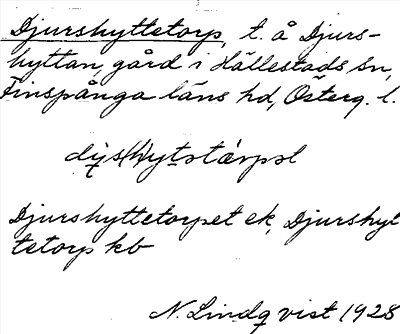 Djurshyttetorp, t. å Djurs-
hyttan, gård i Hällestads sn,
Finspånga läns hd, Österg. l.
Djurshyttetorpet ek, Djurshyt
tetorp kb
N. Lindqvist 1928